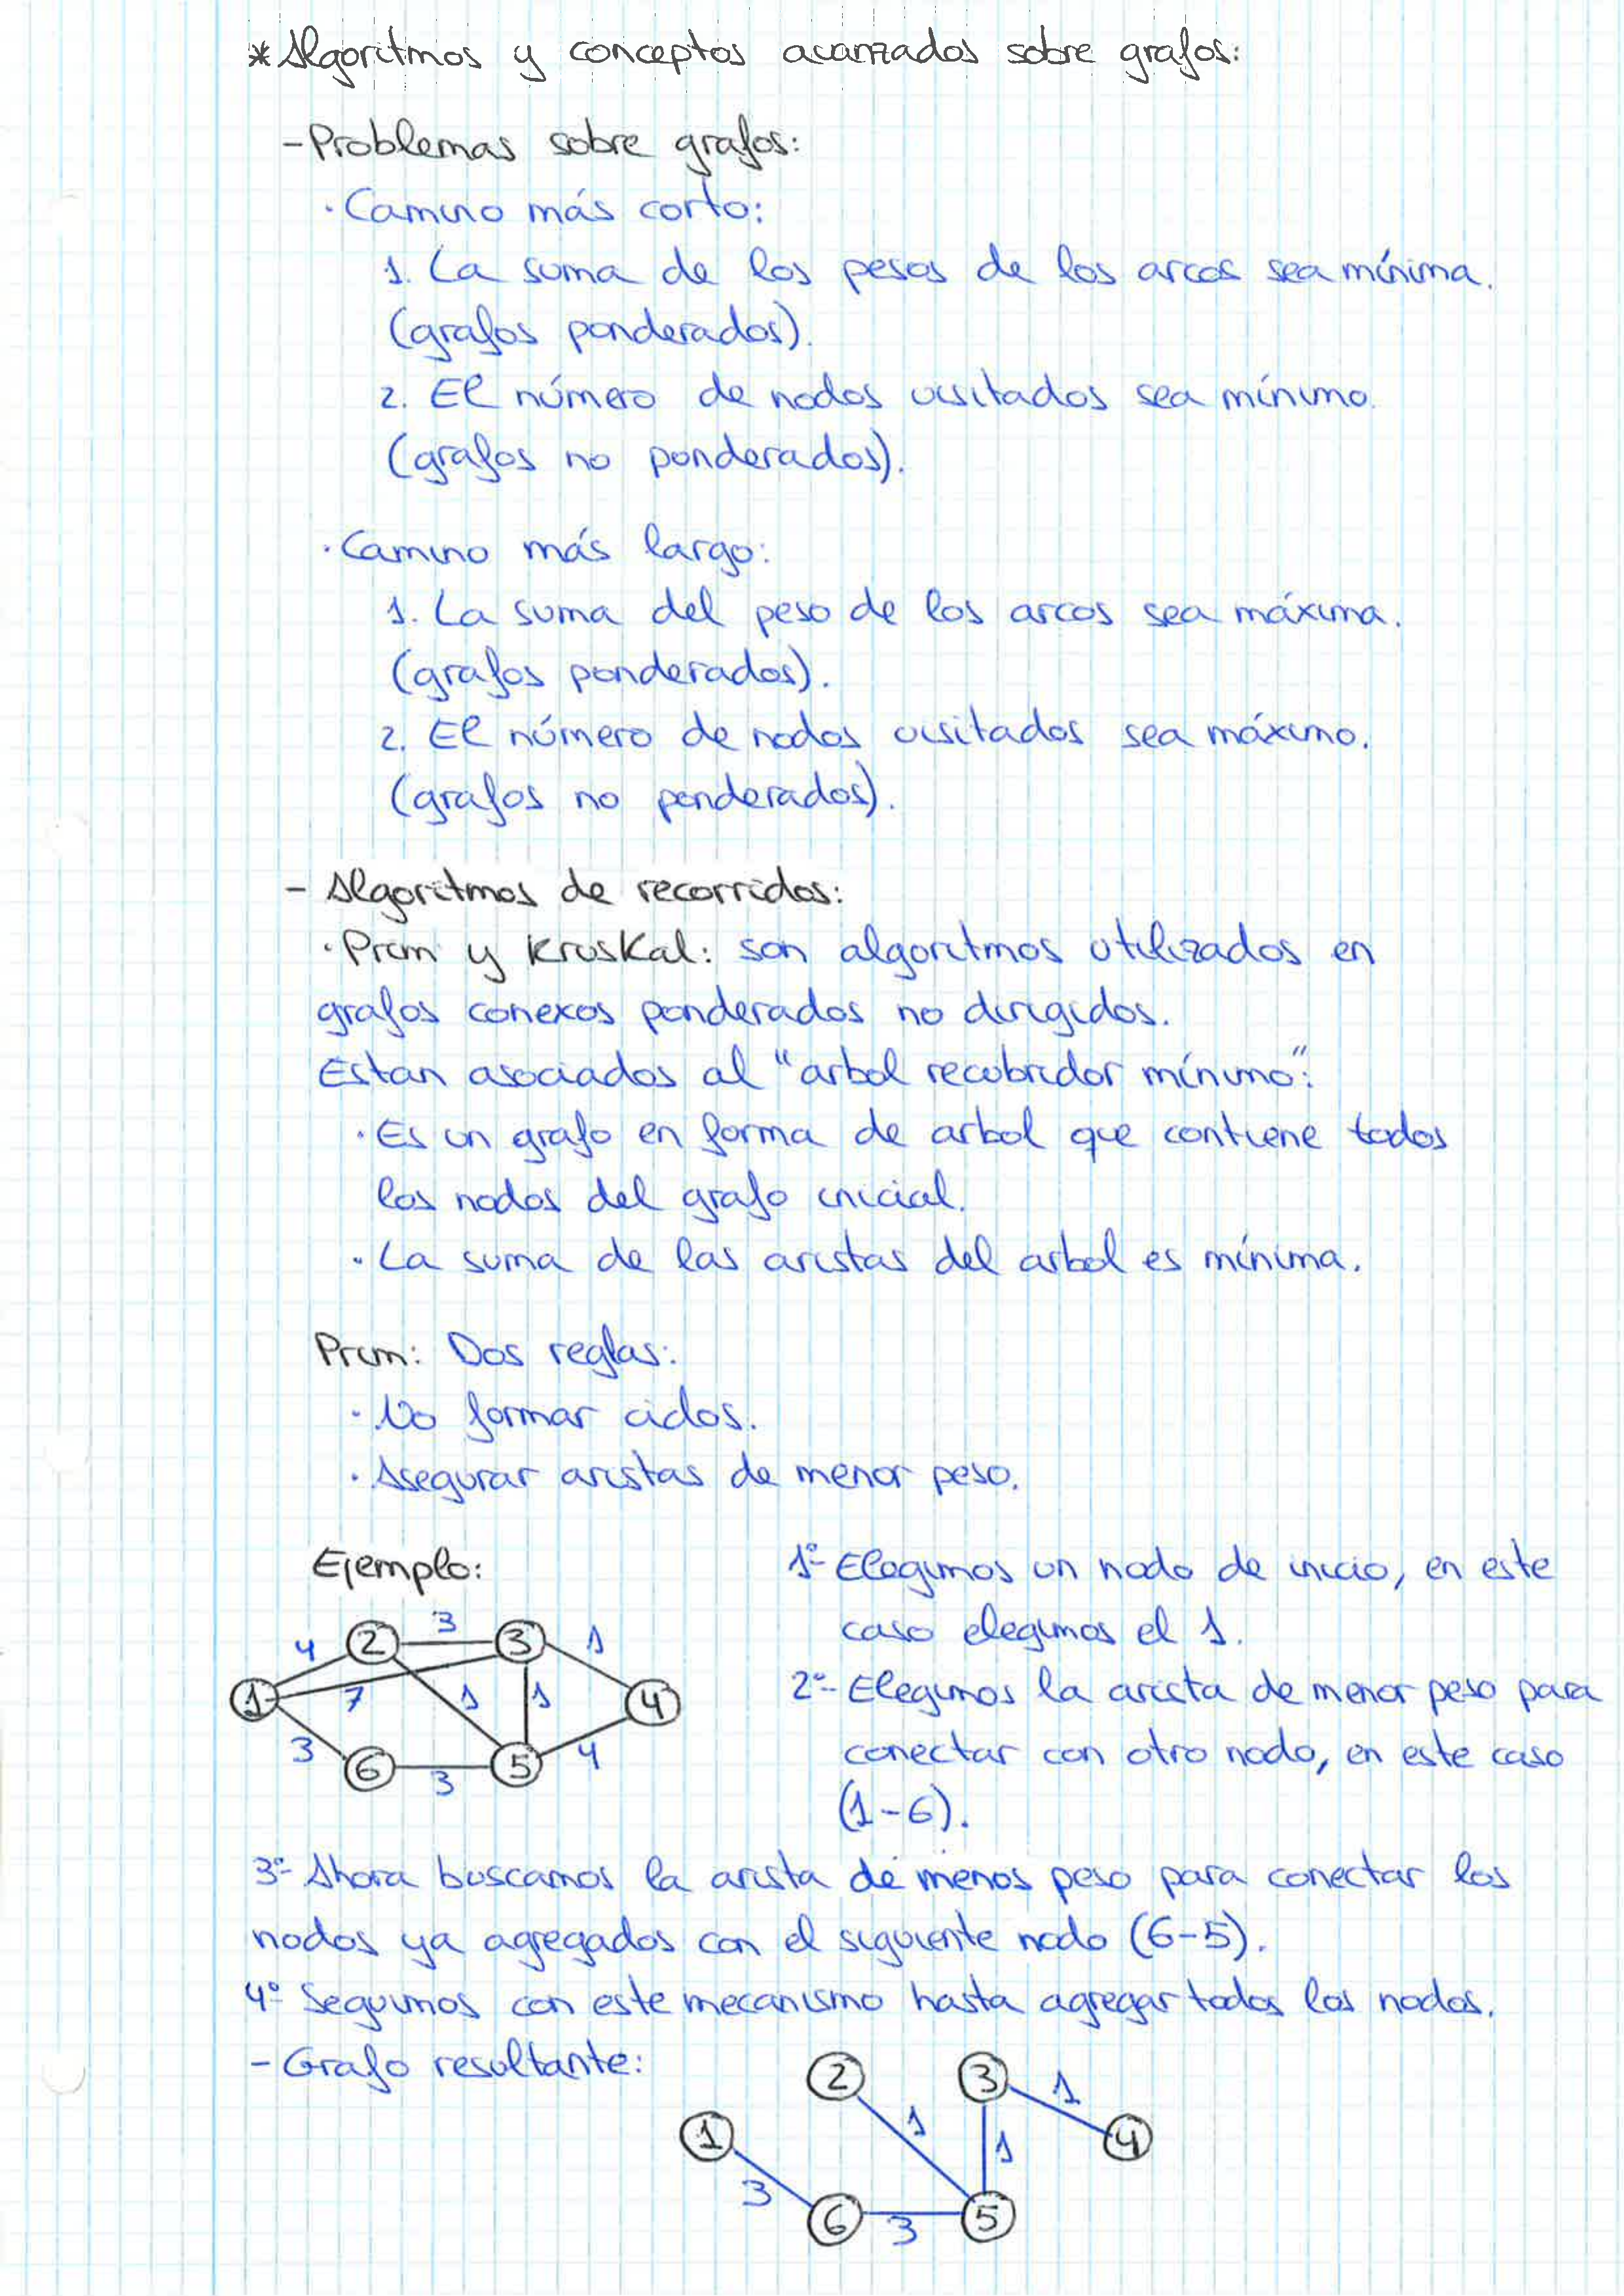 * Algoritmos y conceptos avanzados sobre grafos:
- Problemas sobre grafos:
· Camino más corto:
1. La suma de los pesos de los arcos sea mínima.
(grafos ponderados).
2. El número de nodos visitados sea mínimo.
(grafos no ponderados).
· Camino más largo:
1. La suma del peso de los arcos sea máxima.
(grafos ponderados).
2. El número de nodos visitados sea máximo.
(grafos no ponderados).
- Algoritmos de recorridos:
· Prim y Kruskal: son algoritmos utilizados en
grafos conexos ponderados no dirigidos.
Estan asociados al "arbol recubridor mínimo":
· Es un grafo en forma de arbol que contiene todos
los nodos del grafo inicial.
· La suma de las aristas del arbol es mínima.
Prim: Dos reglas:
· No formar ciclos.
· Asegurar aristas de menor peso.
Ejemplo:
1º- Elegimos un nodo de inicio, en este
caso elegimos el 1.
2º- Elegimos la arista de menor peso para
conectar con otro nodo, en este caso
(1-6).
4 2 3 3 1
1 7 1 1 4
3 6 3 5 4
3º- Ahora buscamos la arista de menos peso para conectar los
nodos ya agregados con el siguiente nodo (6-5).
4º Seguimos con este mecanismo hasta agregar todos los nodos.
- Grafo resultante:
2 3 1
1 1 1 4
3 6 3 5